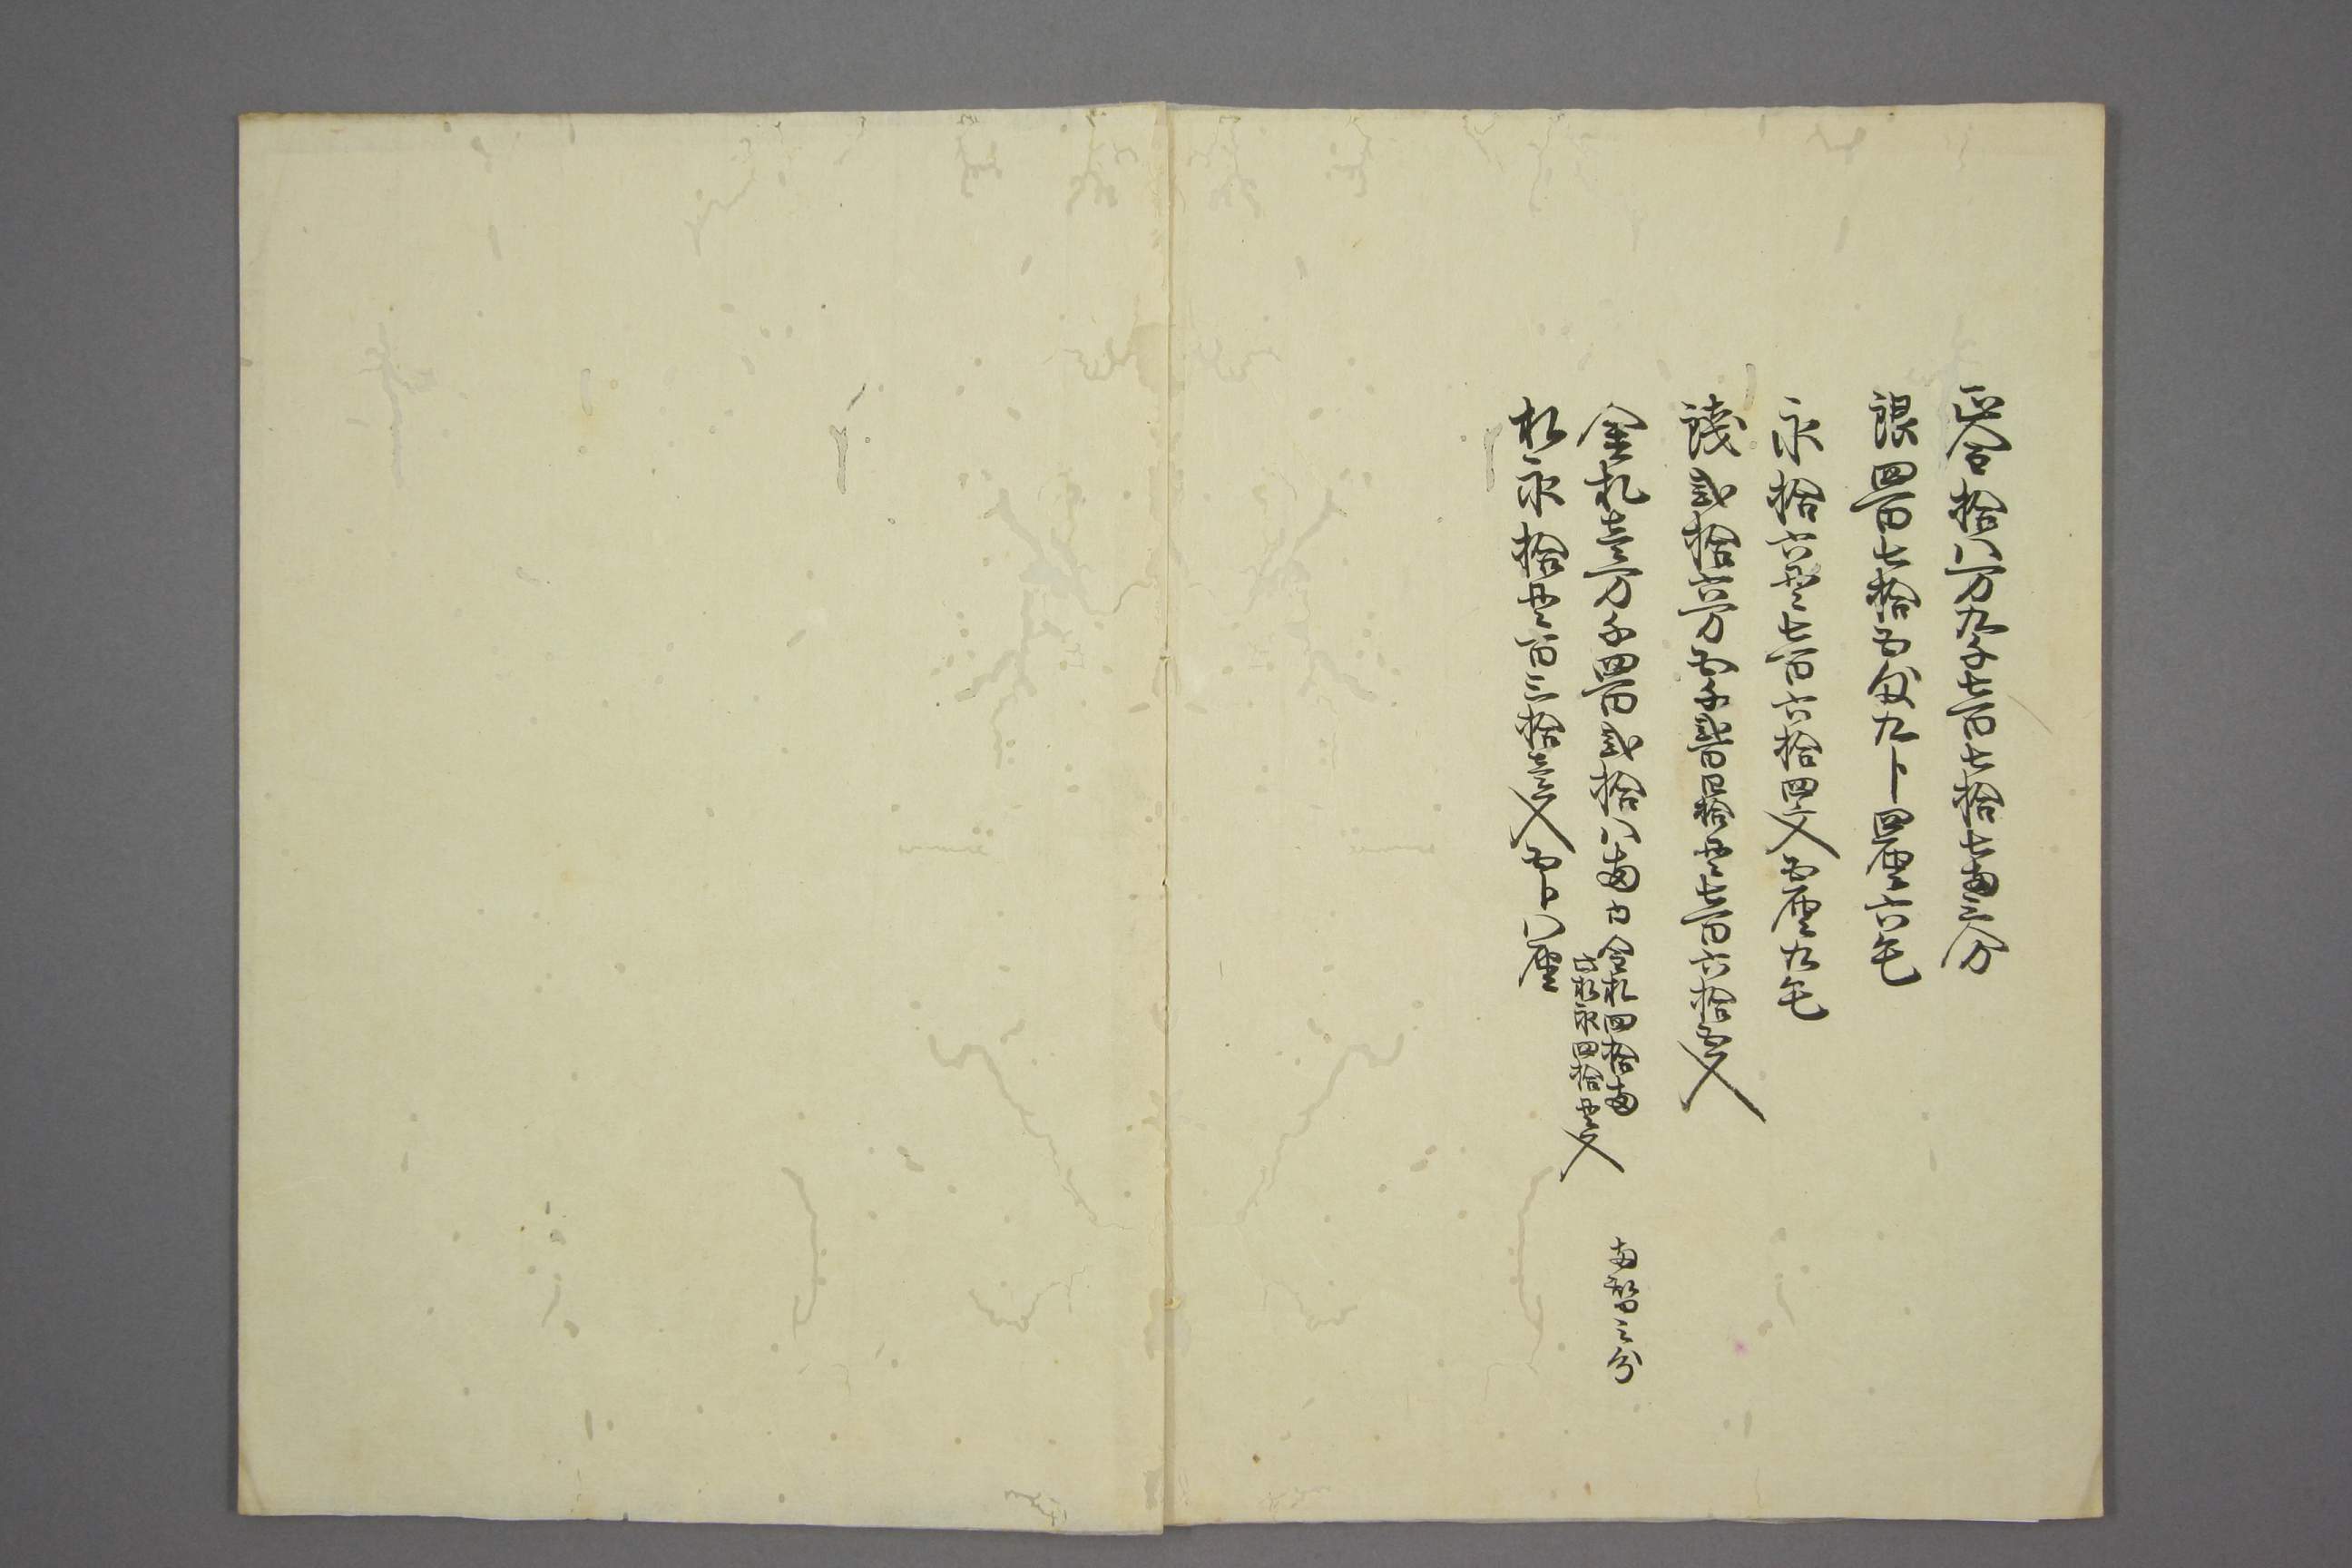 金拾八万九千七百七拾七両三分
銀四百七拾五匁九分四厘六毛
永拾六貫七百六拾四文五厘九毛
銭弐拾六万五千弐百四拾貫七百六拾五文
金札壱万千四百弐拾八両 内 金札四拾両 札永四拾貫文 両替之分
札永拾貫百三拾壱文五分八厘